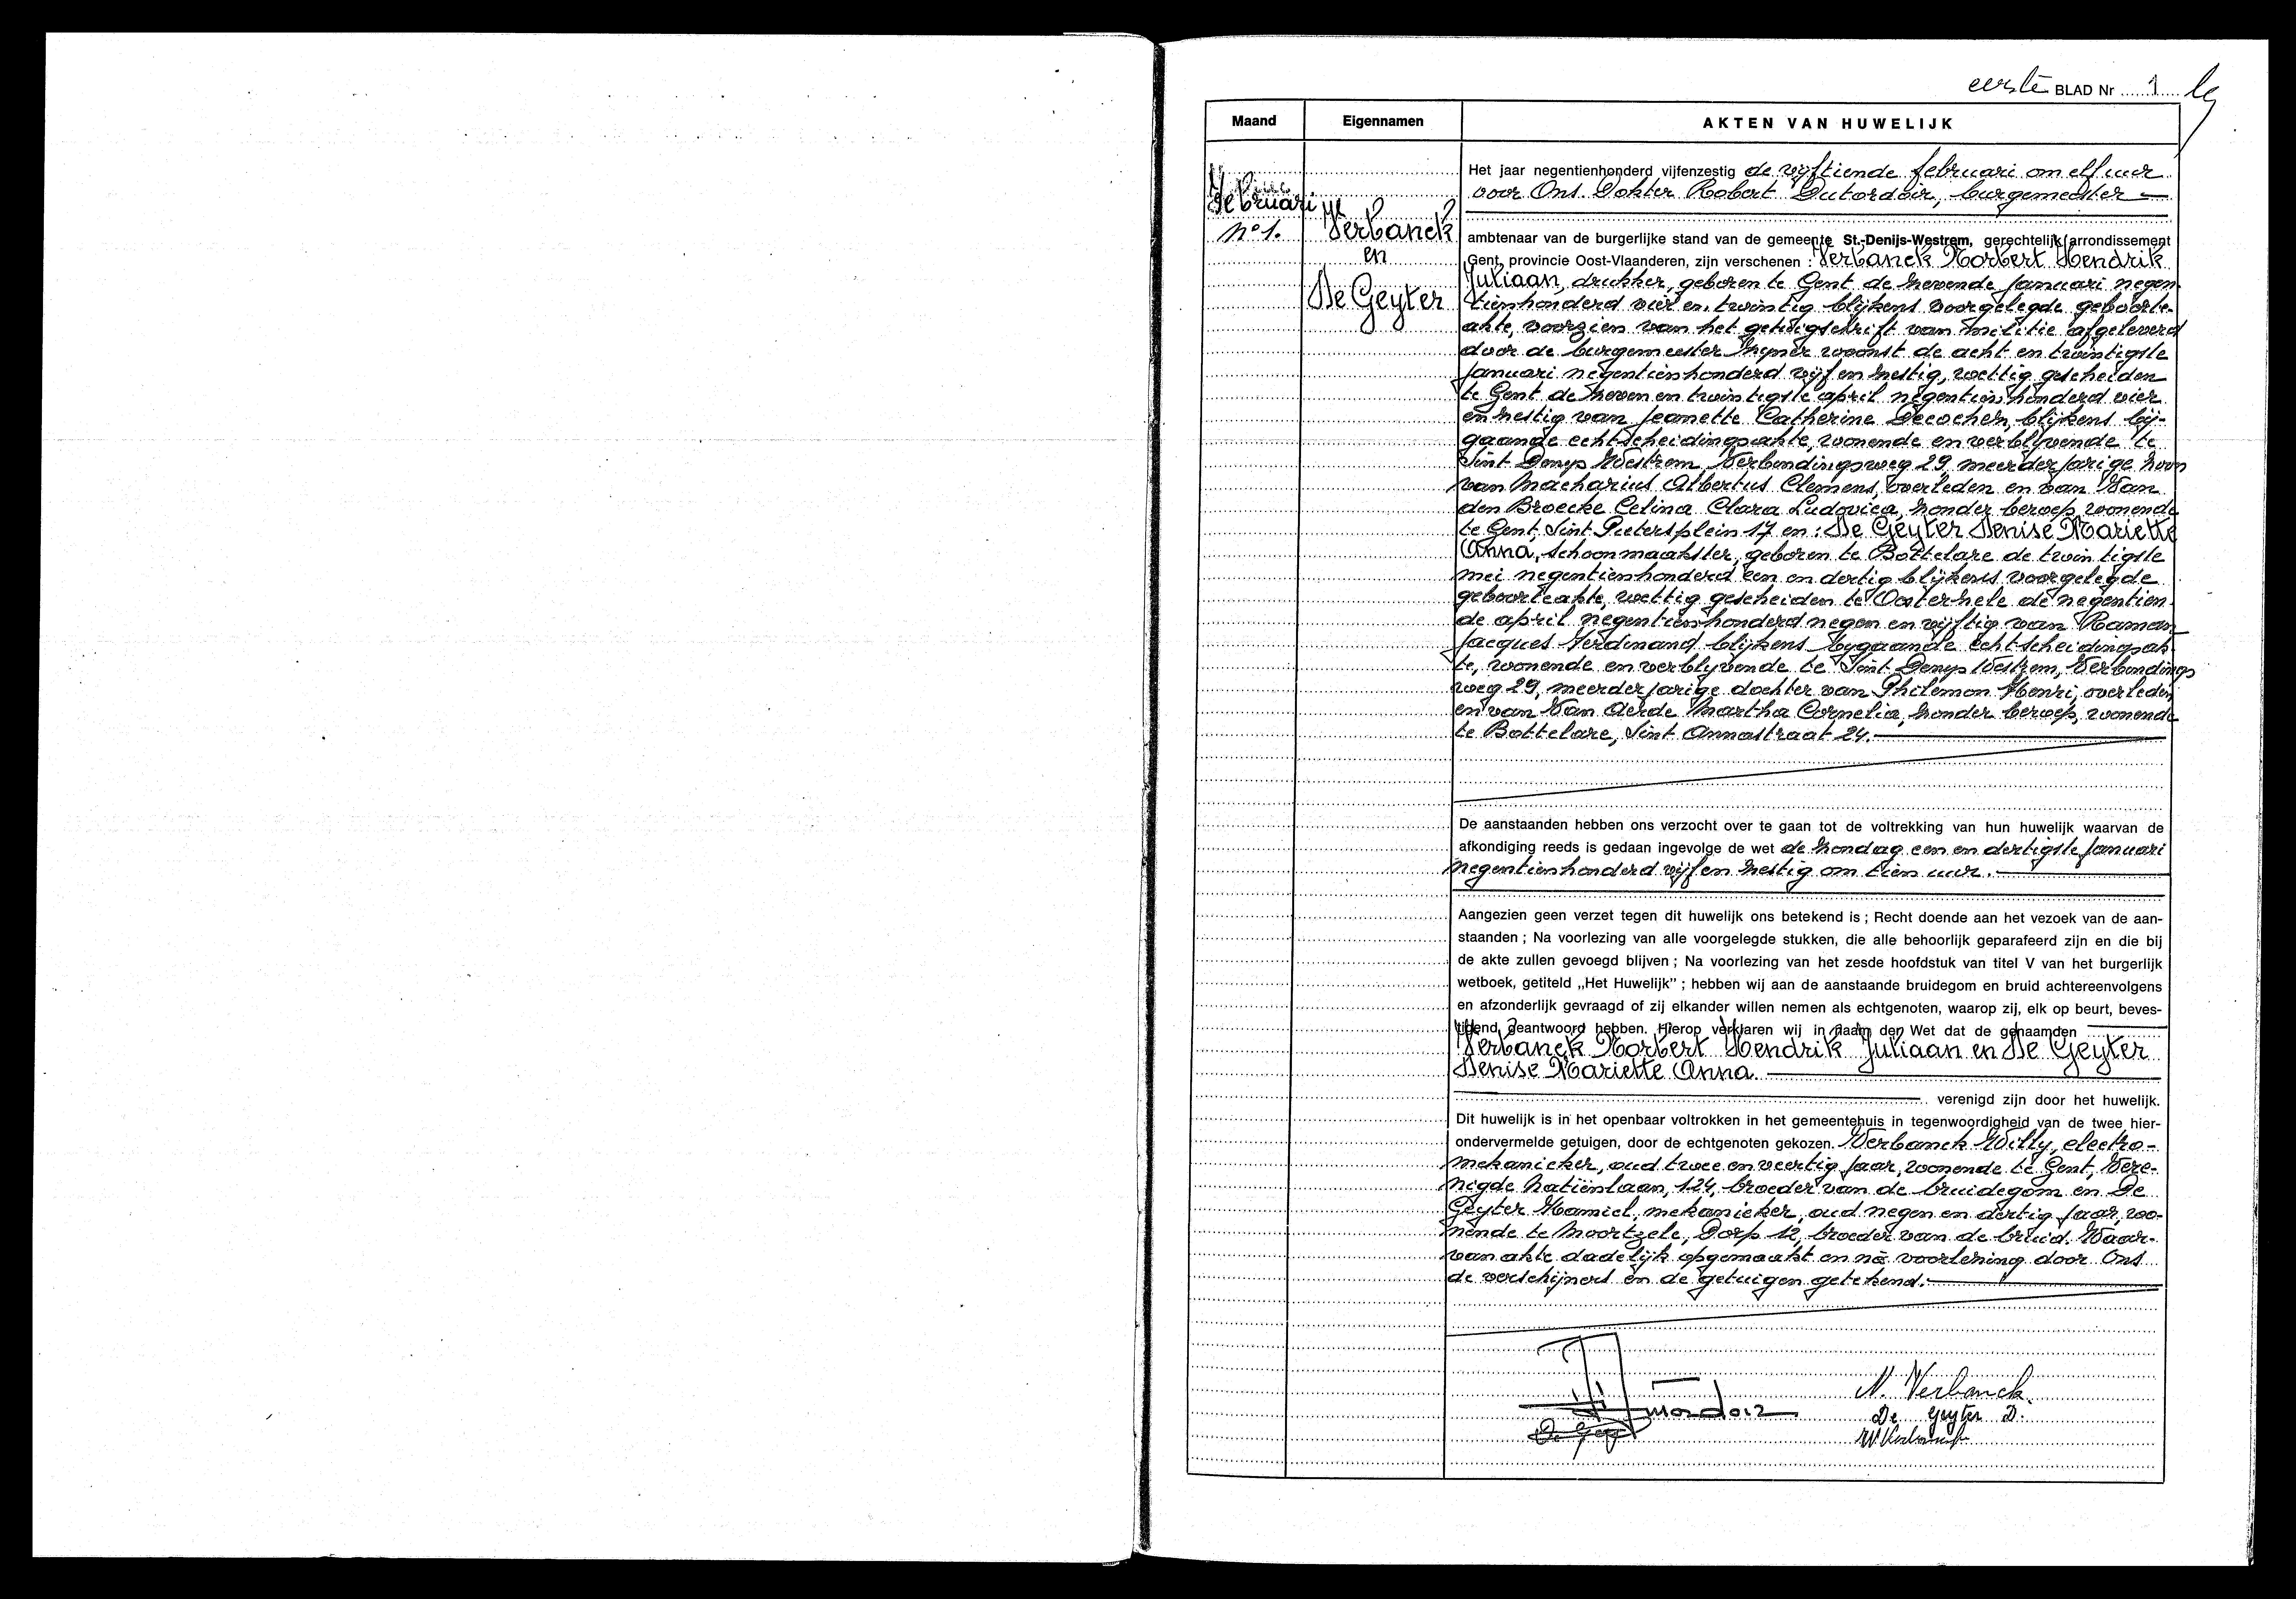 eerste BLAD Nr 1
Maand
Eigennamen
AKTEN VAN HUWELIJK
Februari
No 1.
Verbanck
en
De Geyter
Het jaar negentienhonderd vijfenzestig de vijftiende februari om elf uur
voor Ons. Dokter Robert Dutordoir, burgemeester
ambtenaar van de burgerlijke stand van de gemeente St.-Denijs-Westrem, gerechtelijk arrondissement
Gent, provincie Oost-Vlaanderen, zijn verschenen : Verbanck Norbert Hendrik
Juliaan, drukker, geboren te Gent de zevende januari negen
tienhonderd vier en twintig blijkens voorgelegde geboorte-
akte, voorzien van het getuigschrift van militie afgeleverd
door de burgemeester zijner woonst de acht en twintigste
januari negentienhonderd vijf en zestig, wettig gescheiden
te Gent de zeven en twintigste april negentienhonderd vier
en zestig van Jeanette Catherine Decochez, blijkens bij-
gaande echtscheidingsakte, wonende en verblijvende te
Sint Denys Westrem, Verbindingsweg 29, meerderjarige zoon
van Macharius Albertus Clemens, overleden en van Van
den Broecke Celina Clara Ludovica, zonder beroep, wonende
te Gent, Sint Pietersplein 17 en : De Geyter Denise Mariette
Anna, schoonmaakster, geboren te Bottelare de twintigste
mei negentienhonderd een en dertig blijkens voorgelegde
geboorteakte, wettig gescheiden te Oosterzele de negentien
de april negentienhonderd negen en vijftig van Raman
Jacques Ferdinand blijkens bygaande echtscheidingsak
te, wonende en verblyvende te Sint-Denys Westrem, Verbindings
weg 29, meerderjarige dochter van Philemon Henri, overleden
en van Van Aerde Martha Cornelia, zonder beroep, wonende
te Bottelare, Sint Annastraat 24.
De aanstaanden hebben ons verzocht over te gaan tot de voltrekking van hun huwelijk waarvan de
afkondiging reeds is gedaan ingevolge de wet de zondag een en dertigste januari
negentienhonderd vijf en zestig om tien uur.
Aangezien geen verzet tegen dit huwelijk ons betekend is ; Recht doende aan het vezoek van de aan-
staanden ; Na voorlezing van alle voorgelegde stukken, die alle behoorlijk geparafeerd zijn en die bij
de akte zullen gevoegd blijven ; Na voorlezing van het zesde hoofdstuk van titel V van het burgerlijk
wetboek, getiteld „Het Huwelijk" ; hebben wij aan de aanstaande bruidegom en bruid achtereenvolgens
en afzonderlijk gevraagd of zij elkander willen nemen als echtgenoten, waarop zij, elk op beurt, beves-
tigend geantwoord hebben. Hierop verklaren wij in naam der Wet dat de genaamden
Verbanck Norbert Hendrik Juliaan en De Geyter
Denise Mariette Anna
verenigd zijn door het huwelijk.
Dit huwelijk is in het openbaar voltrokken in het gemeentehuis in tegenwoordigheid van de twee hier-
ondervermelde getuigen, door de echtgenoten gekozen. Verbanck Willy, electro-
mekanieker, oud twee en veertig jaar, wonende te Gent, Vere-
nigde Natiënlaan, 124, broeder van de bruidegom en De
Geyter Kamiel, mekanieker, oud negen en dertig jaar, wo-
nende te Moortzele, Dorp 12, broeder van de bruid. Waar-
van akte dadelijk opgemaakt en na voorlezing door Ons
de verschijners en de getuigen getekend.
Dutordoir
N. Verbanck
De Geyter D.
W Verbanck